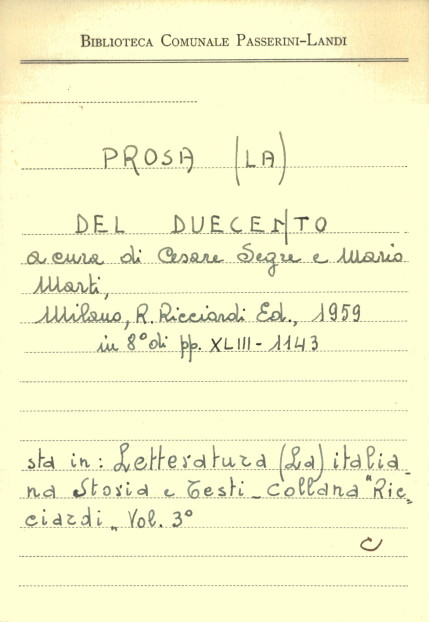 BIBLIOTECA COMUNALE PASSERINI-LANDI
PROSA (LA)
DEL DUECENTO
a cura di Cesare Segre e Mario
Marti,
Milano, R. Ricciardi Ed., 1959
in 8° di pp. XLIII - 1143
sta in: Letteratura (La) italia-
na Storia e Testi - Collana "Ric-
ciardi" Vol. 3°
C